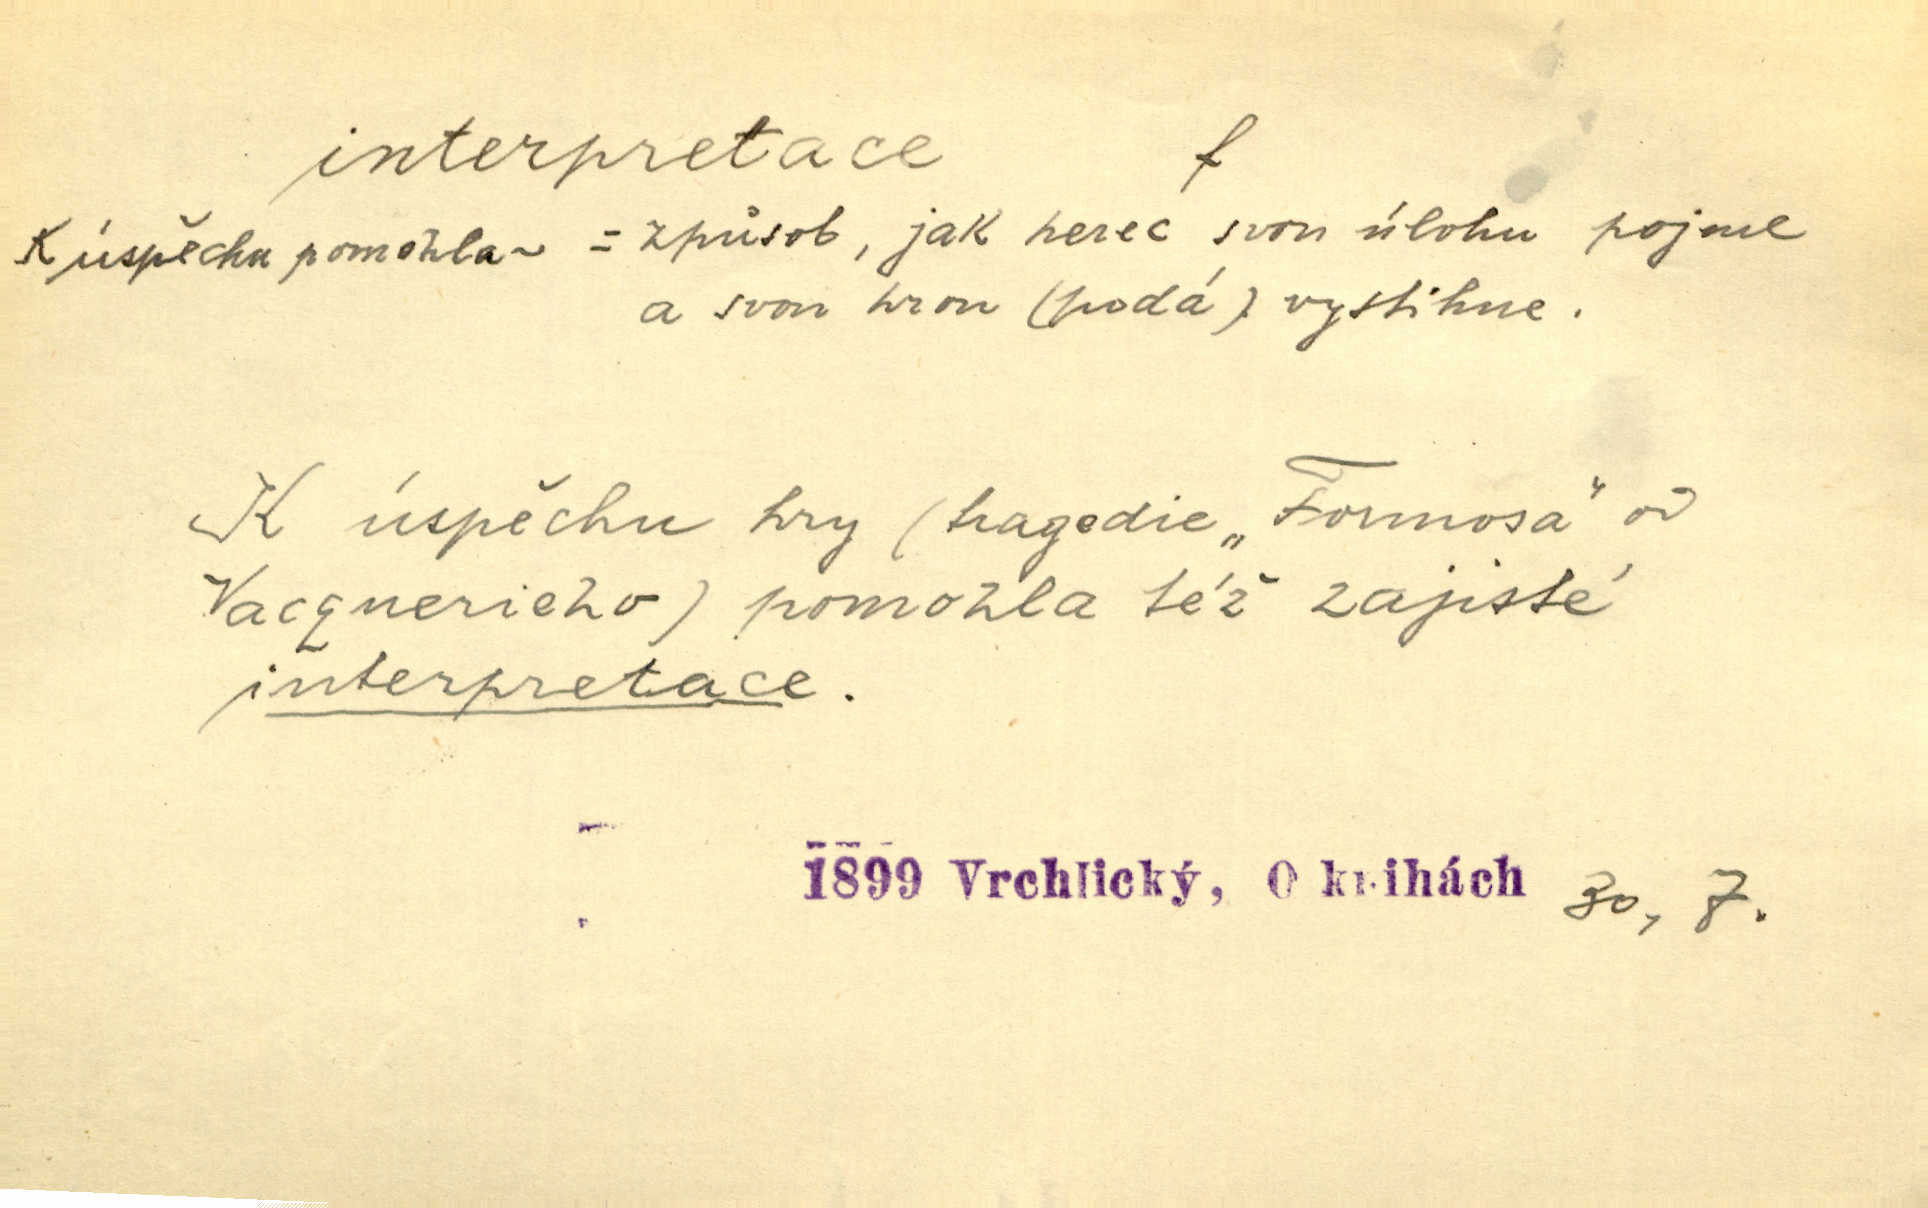 interpretace f
K úspěchu pomohla ~ = způsob, jak herec svou úlohu pojme
a svou hrou (podá) vystihne.
K úspěchu hry (tragedie „Formosa" od
Vacquerieho) pomohla též zajisté
interpretace.
1899 Vrchlický, O knihách 30, 7.